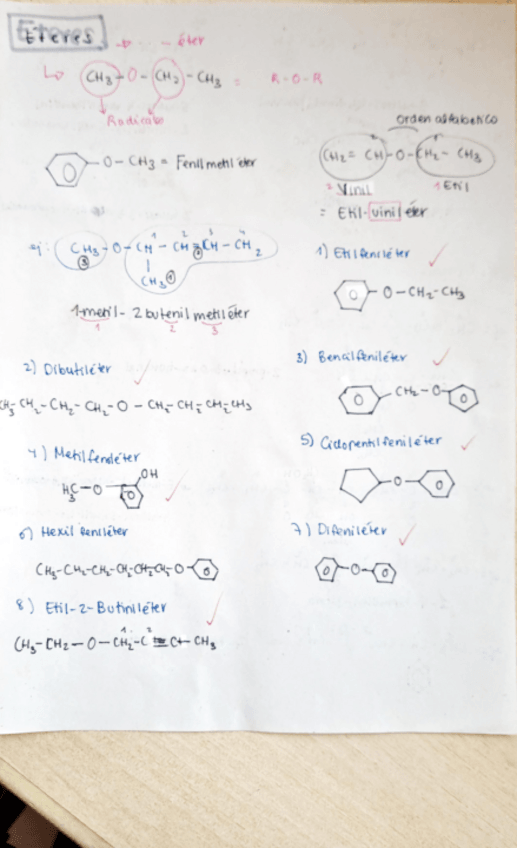 Éteres.
→ - ... - éter
↳ CH₃ - O - CH₂ - CH₃ = R - O - R
Radicales
O - CH₃ = Fenilmetiléter
Orden alfabetico
CH₂ = CH - O - CH₂ - CH₃
2 Vinil 1 Etil
= Etil-vinil éter
ej: CH₃ - O - CH - CH = CH - CH₂
1 2 3 4
CH₃
1-metil - 2 butenil metiléter
1 2 3
1) Etilfeniléter
O - CH₂ - CH₃
2) Dibutiléter
CH₃ - CH₂ - CH₂ - CH₂ - O - CH₂ - CH₂ - CH₂ - CH₃
3) Bencilfeniléter
CH₂ - O
4) Metilfenoléter
OH
H₃C - O
5) Ciclopentilfeniléter
O
6) Hexil feniléter
CH₃ - CH₂ - CH₂ - CH₂ - CH₂ - CH₂ - O
7) Difeniléter
O
8) Etil-2-Butiniléter
1 2
CH₃ - CH₂ - O - CH₂ - C ≡ C - CH₃